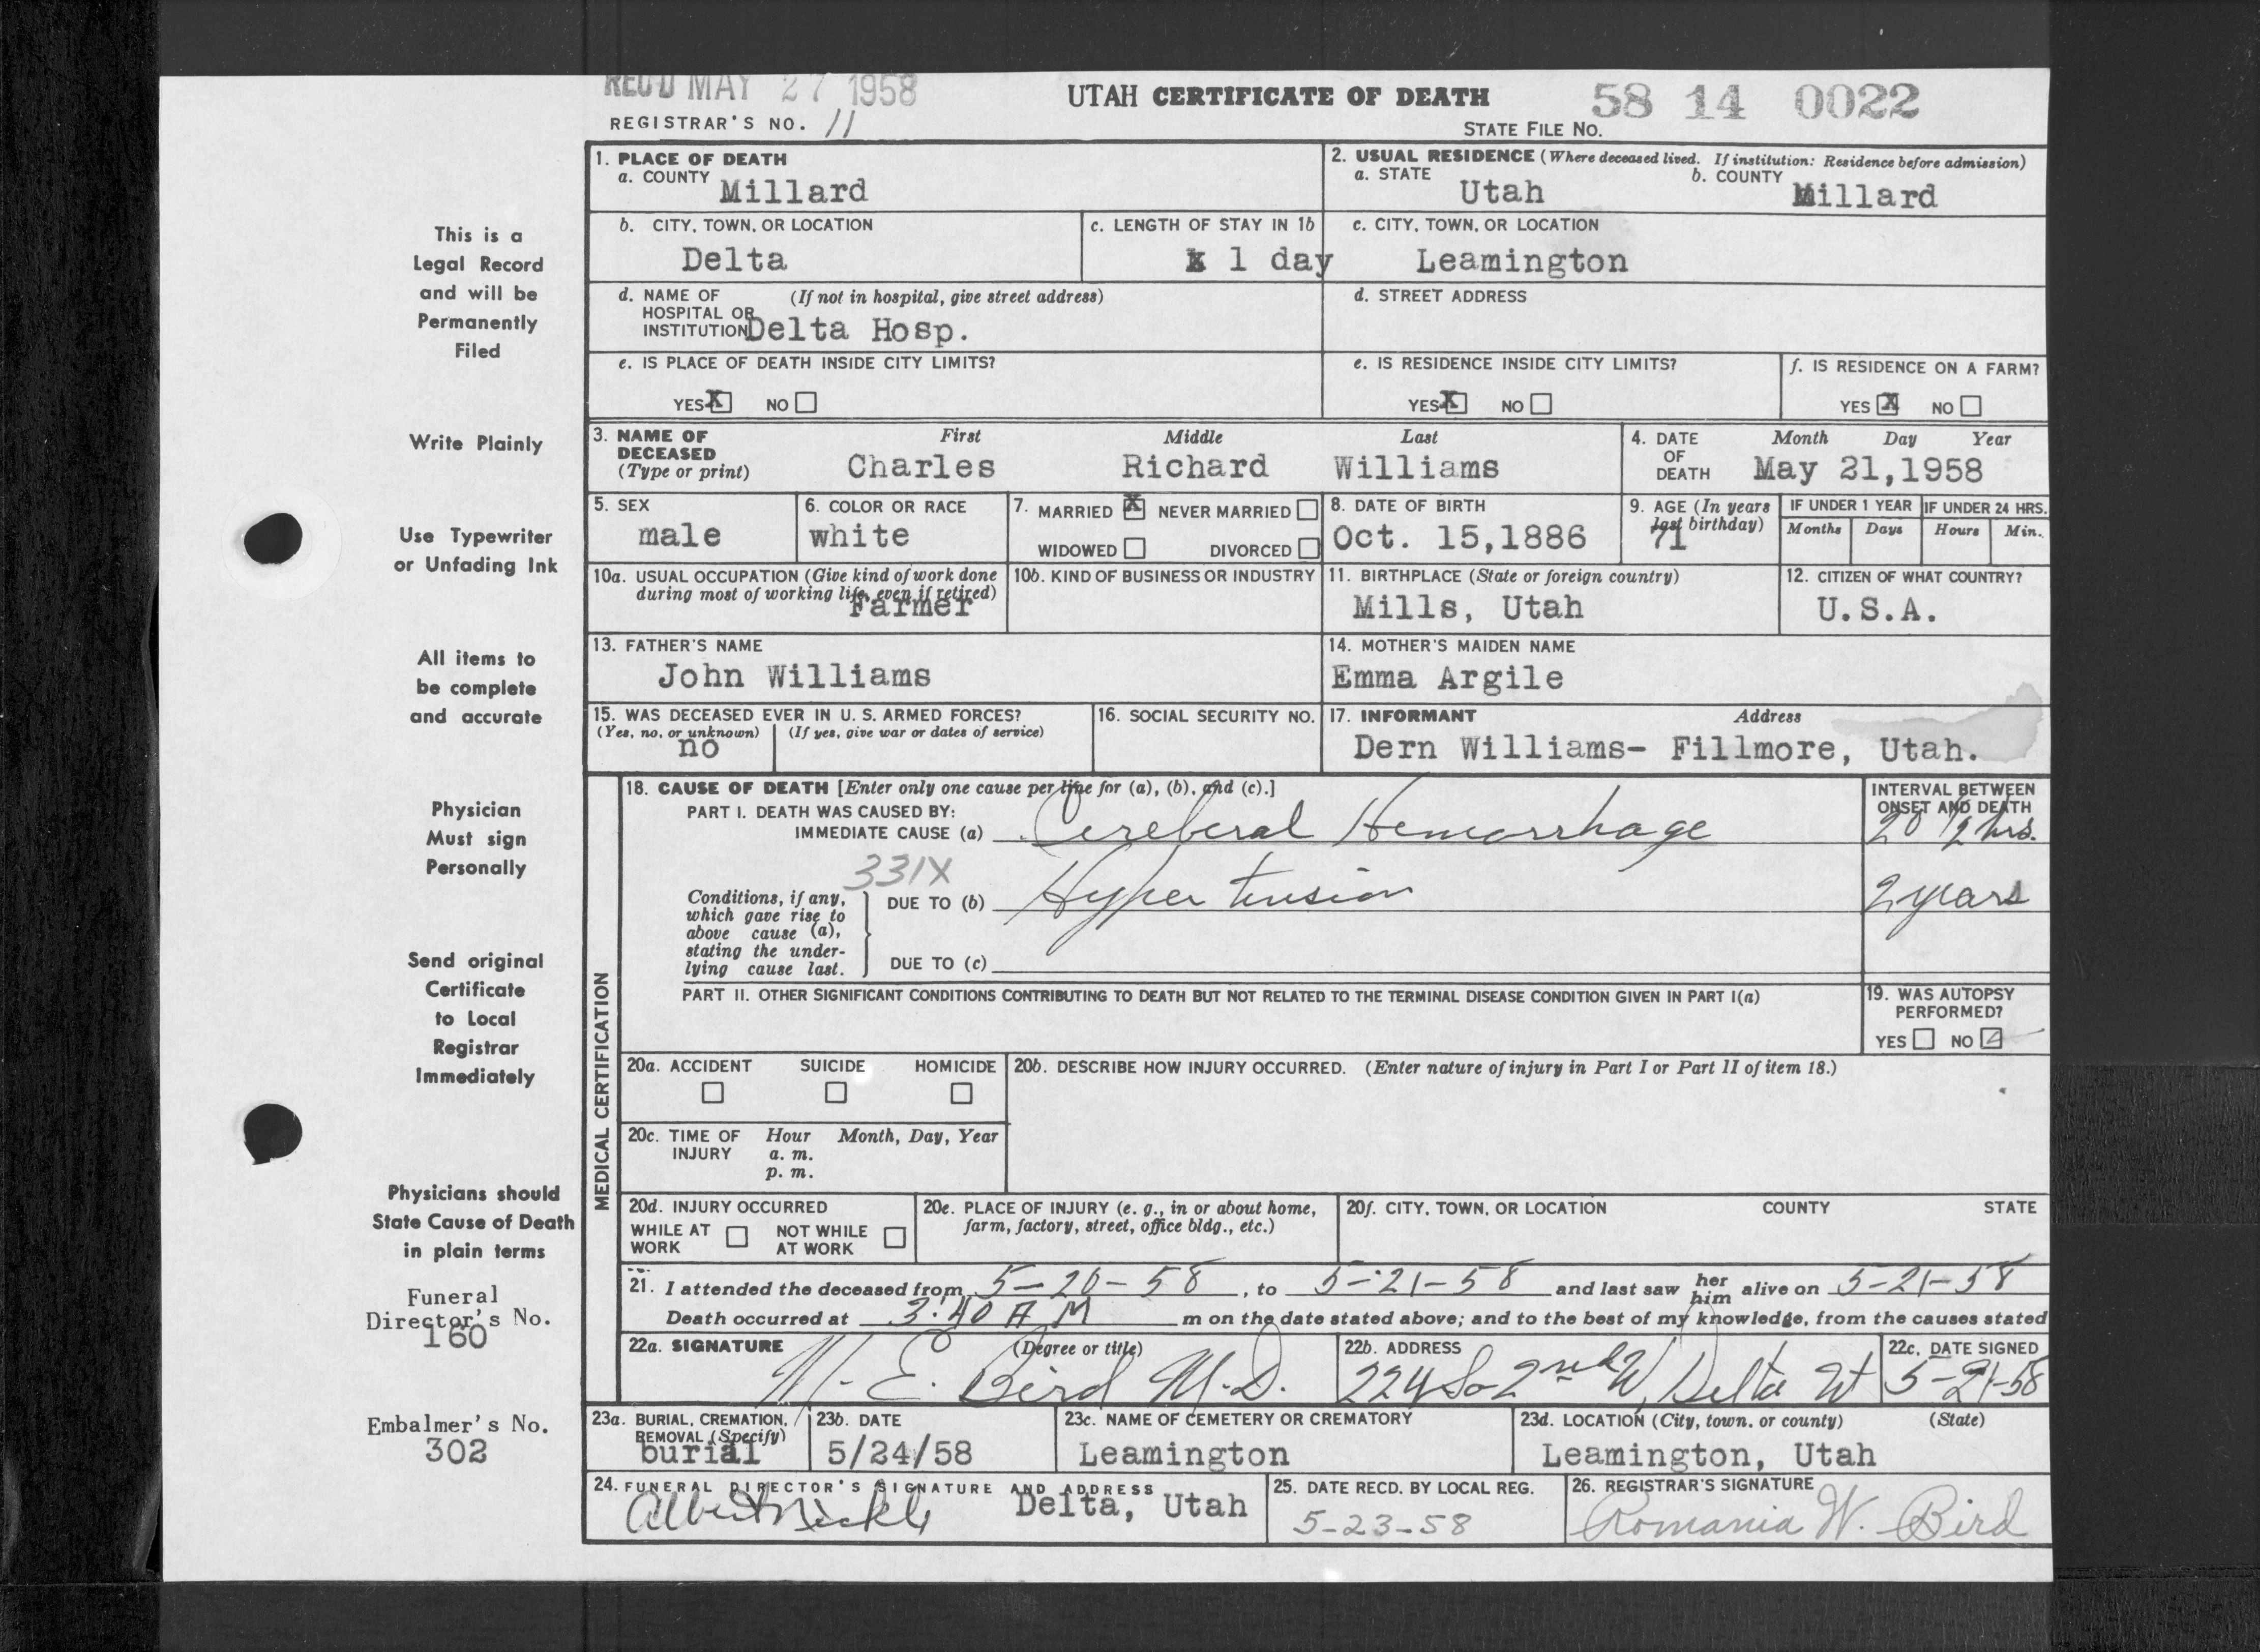 REC'D MAY 27 1958
UTAH CERTIFICATE OF DEATH
58 14 0022
REGISTRAR'S NO. 11
STATE FILE NO.
1. PLACE OF DEATH
a. COUNTY Millard
2. USUAL RESIDENCE (Where deceased lived. If institution: Residence before admission)
a. STATE Utah b. COUNTY Millard
b. CITY, TOWN, OR LOCATION Delta
c. LENGTH OF STAY IN 1b 1 day
c. CITY, TOWN, OR LOCATION Leamington
d. NAME OF HOSPITAL OR INSTITUTION (If not in hospital, give street address) Delta Hosp.
d. STREET ADDRESS
e. IS PLACE OF DEATH INSIDE CITY LIMITS?
YES X NO
e. IS RESIDENCE INSIDE CITY LIMITS?
YES X NO
f. IS RESIDENCE ON A FARM?
YES X NO
3. NAME OF DECEASED (Type or print)
First Middle Last
Charles Richard Williams
4. DATE OF DEATH Month Day Year
May 21,1958
5. SEX male
6. COLOR OR RACE white
7. MARRIED X NEVER MARRIED
WIDOWED DIVORCED
8. DATE OF BIRTH Oct. 15,1886
9. AGE (In years last birthday) 71
IF UNDER 1 YEAR Months Days
IF UNDER 24 HRS. Hours Min.
10a. USUAL OCCUPATION (Give kind of work done during most of working life, even if retired) Farmer
10b. KIND OF BUSINESS OR INDUSTRY
11. BIRTHPLACE (State or foreign country) Mills, Utah
12. CITIZEN OF WHAT COUNTRY? U.S.A.
13. FATHER'S NAME John Williams
14. MOTHER'S MAIDEN NAME Emma Argile
15. WAS DECEASED EVER IN U. S. ARMED FORCES?
(Yes, no, or unknown) no (If yes, give war or dates of service)
16. SOCIAL SECURITY NO.
17. INFORMANT Address
Dern Williams- Fillmore, Utah.
MEDICAL CERTIFICATION
18. CAUSE OF DEATH [Enter only one cause per line for (a), (b), and (c).]
INTERVAL BETWEEN ONSET AND DEATH
PART I. DEATH WAS CAUSED BY:
IMMEDIATE CAUSE (a) Cereberal Hemorrhage 20 1/2 hrs.
331X
Conditions, if any, which gave rise to above cause (a), stating the underlying cause last.
DUE TO (b) Hyper tension 2 years
DUE TO (c)
PART II. OTHER SIGNIFICANT CONDITIONS CONTRIBUTING TO DEATH BUT NOT RELATED TO THE TERMINAL DISEASE CONDITION GIVEN IN PART I(a)
19. WAS AUTOPSY PERFORMED?
YES NO
20a. ACCIDENT SUICIDE HOMICIDE
20b. DESCRIBE HOW INJURY OCCURRED. (Enter nature of injury in Part I or Part II of item 18.)
20c. TIME OF INJURY Hour a. m. p. m. Month, Day, Year
20d. INJURY OCCURRED
WHILE AT WORK NOT WHILE AT WORK
20e. PLACE OF INJURY (e. g., in or about home, farm, factory, street, office bldg., etc.)
20f. CITY, TOWN, OR LOCATION COUNTY STATE
21. I attended the deceased from 5-20-58, to 5-21-58 and last saw her him alive on 5-21-58
Death occurred at 3:40 A M m on the date stated above; and to the best of my knowledge, from the causes stated
22a. SIGNATURE (Degree or title) M. E. Bird M.D.
22b. ADDRESS 224 So 2nd W, Delta Ut
22c. DATE SIGNED 5-21-58
23a. BURIAL, CREMATION, REMOVAL (Specify) burial
23b. DATE 5/24/58
23c. NAME OF CEMETERY OR CREMATORY Leamington
23d. LOCATION (City, town, or county) (State) Leamington, Utah
24. FUNERAL DIRECTOR'S SIGNATURE AND ADDRESS Delta, Utah
25. DATE RECD. BY LOCAL REG. 5-23-58
26. REGISTRAR'S SIGNATURE Romania W. Bird
This is a
Legal Record
and will be
Permanently
Filed
Write Plainly
Use Typewriter
or Unfading Ink
All items to
be complete
and accurate
Physician
Must sign
Personally
Send original
Certificate
to Local
Registrar
Immediately
Physicians should
State Cause of Death
in plain terms
Funeral
Director's No.
160
Embalmer's No.
302